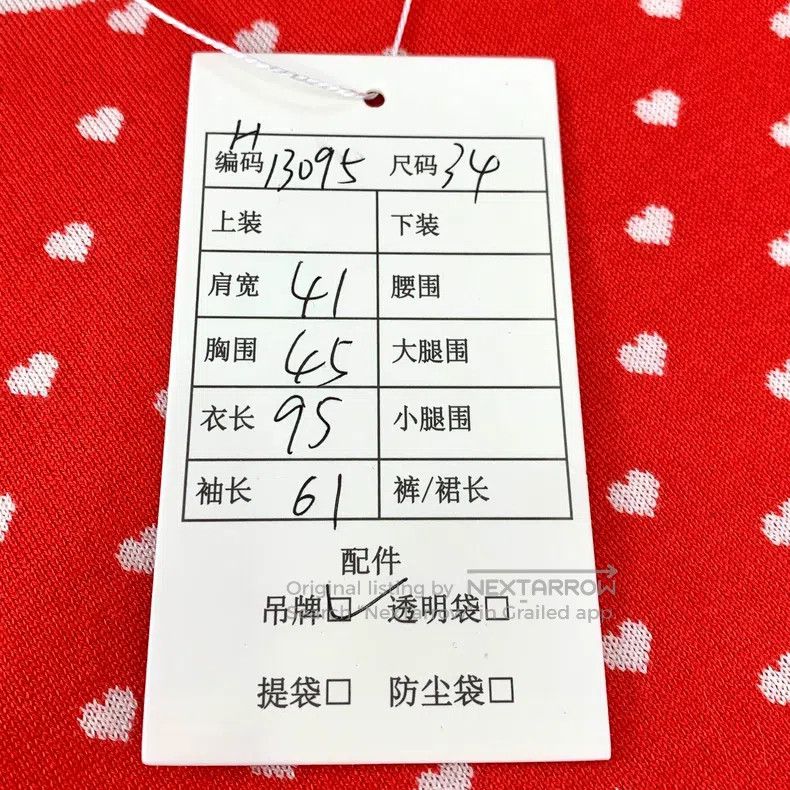 编码 H13095 尺码 34
上装 下装
肩宽 41 腰围
胸围 45 大腿围
衣长 95 小腿围
袖长 61 裤/裙长
配件
Original listing by NEXTARROW
吊牌☑ 透明袋□
Search "Nextarrow" in Grailed app
提袋□ 防尘袋□